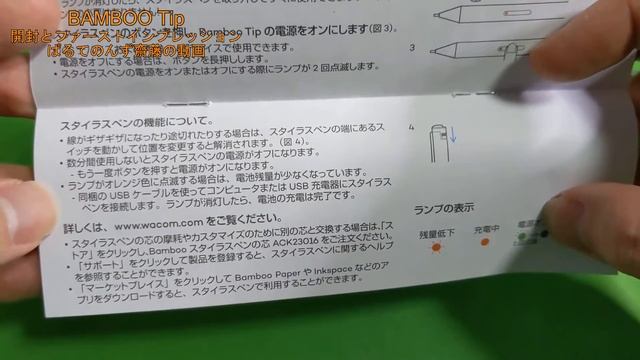 BAMBOO Tip
開封とファーストインプレッション
ぱるてのんず齋藤の動画
ランプが消灯したら、
スタイラスペンのボタンを押し、Bamboo Tip の電源をオンにします(図 3)。
で使用できます。
• 電源をオフにする場合は、ボタンを長押しします。
• スタイラスペンの電源をオンまたはオフにする際にランプが 2 回点滅します。
3
スタイラスペンの機能について。
• 線がギザギザになったり途切れたりする場合は、スタイラスペンの端にあるス
イッチを動かして位置を変更すると解消されます。(図 4)。
• 数分間使用しないとスタイラスペンの電源がオフになります。
- もう一度ボタンを押すと電源がオンになります。
• ランプがオレンジ色に点滅する場合は、電池残量が少なくなっています。
- 同梱の USB ケーブルを使ってコンピュータまたは USB 充電器にスタイラス
ペンを接続します。ランプが消灯したら、電池の充電は完了です。
4
詳しくは、www.wacom.com をご覧ください。
• スタイラスペンの芯の摩耗やカスタマイズのために別の芯と交換する場合は、「ス
トア」をクリックし、Bamboo スタイラスペンの芯 ACK23016 をご注文ください。
• 「サポート」をクリックして製品を登録すると、スタイラスペンに関するヘルプ
を参照することができます。
• 「マーケットプレイス」をクリックして Bamboo Paper や Inkspace などのア
プリをダウンロードすると、スタイラスペンで利用することができます。
ランプの表示
残量低下
充電中
電源